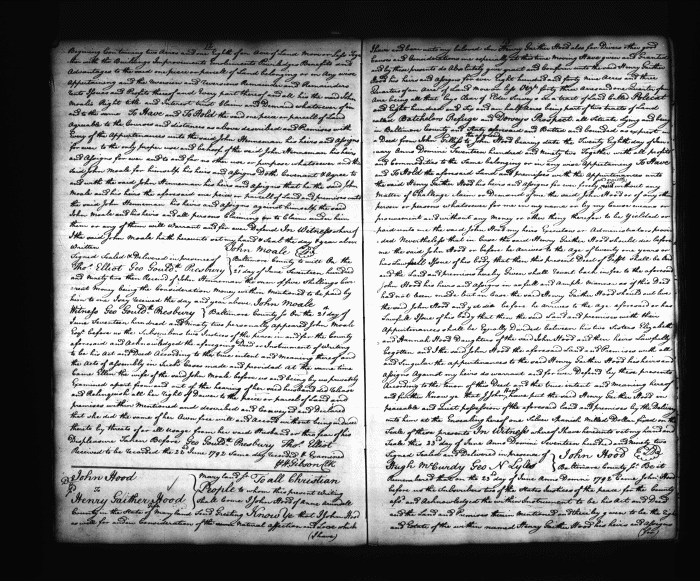 Beginning Containing two Acres and one Eighth of an Acre of Land More or Less Toge
ther with the Buildings Improvements Emoluments Privileges Benefits and
Advantages to the said one piece or parcell of Land belonging or in Any wise
appertaining and the Reversion and Reversions Remainder and Remainders
Rents Issues and Profits thereof and Every part thereof and all his the said John
Moale Right title and Interest trust Claim and Demand whatsoever of in
and to the same To Have and To Hold the said one piece or parcell of Land
Agreeable to the Courses and distances as above described and Premises with
Every of the Appurtenances unto the said John Henneman his heirs and assigns
for ever to the only proper use and behoof of the said John Henneman his heirs
and Assigns for ever and to and for no other use or purpose whatsoever and the
said John Moale for himself his heirs and Assigns Doth Covenant & agree to
and with the said John Henneman his heirs and assigns that he the said John
Moale and his heirs the aforesaid one piece or parcell of Land and premises unto
the said John Henneman his heirs and Assigns against himself the said
John Moale and his heirs and all persons Claiming or to Claim under him
them or any of them will Warrant and for ever Defend In Witness whereof
I the said John Moale hath hereunto set my hand & seal the day & year above
Written John Moale
Signed Sealed & Delivered in presence of Baltimore County to wit On the
Thos. Elliot Geo Gouldh. Presbury 21st day of June Seventeen hundred
and Ninety two then Received of John Henneman the sum of five Shillings Cur
rent Money being the Consideration Money within Mentioned to be paid by
him to me I say received the day and year above John Moale
Witness Geo Gouldh. Presbury Baltimore County ss On the 21st day of
June Seventeen hundred and Ninety two personally appeared John Moale
Esqr before us the Subscribers two Justices of the peace in and for the County
aforesaid and Acknowledged the aforegoing Deed or Instrument of Writing
to be his Act and Deed According to the true intent and Meaning thereof and
the Acts of Assembly in such Cases made and provided At the same time
Came Ellin the wife of the said John Moale before us and being by us privately
Examined apart from and out of the hearing of her said husband did Release
and Relinquish all her Right of Dower to the piece or parcel of Land and
premises within Mentioned and described and Conveyed and Declared
that she did the same of her own free will and Accord without being induced
thereto by threats of or ill usage from her said Husband or thro fear of his
Displeasure Taken Before Geo Gouldh. Presbury Thos Elliot
Received to be recorded the 22d June 1792 Same day recorded & Examined
Wm Gibson Clk
John Hood
To
Henry Gaither Hood
Maryland Ss To all Christian
People to whom this present Writing
Shall Come I John Hood of Anne Arundell
County in the State of Maryland Send Greeting Know Ye that I John Hood
as well for and in Consideration of the same Natural affection and Love which
(I have)
I have and bear unto my beloved Son Henry Gaither Hood also for Divers other good
Causes and Considerations me especially at this time Moving Have given and Granted
and by these presents do Absolutely give grant and Confirm unto the said Henry Gaither
Hood his heirs and Assigns for ever Eight hundred and forty nine Acres and three
Quarters of an Acre of Land More or Less
being all that
in Baltimore County and State aforesaid and Butted and bounded as appears
Deed from to John Hood bearing date the Twenty Eighth day of
Anno Domini Seventeen hundred and Ninety two Together with all profits
and Commodities to the Same belonging or in any wise Appertaining To Have
and To Hold the aforesaid Land and premises with the Appurtenances unto
the said Henry Gaither Hood his heirs and Assigns for ever freely without any
Matter of Challenge Claim or Demand of me the said John Hood or of any other
person or persons whatsoever for me in my name or by my Cause means or
procurement and without any Money or other thing therefor to be Yielded or
paid unto me the said John Hood my heirs Executors or Administrators provi
ded Nevertheless that in Case the said Henry Gaither Hood should die before
me the said John Hood or before he Arrives to the Age of twenty one years or
has Lawfull Issue of his body that then this present Deed of Gift shall be void
and the Land and premises hereby Given shall revert back in fee to the aforesaid
John Hood his heirs and Assigns in as full and Ample Manner as if this Deed
had not been made but in Case the said Henry Gaither Hood should die before
the said John Hood and yet die before he arrives to the Age aforesaid or has
Lawfull Issue of his body then the said Land and premises with their
Appurtenances shall be Equally Divided between his two Sisters Elizabeth
and Hannah Hood Daughters of the said John Hood and their heirs Lawfully
begotten And I the said John Hood the aforesaid Land and Premises with
and Every the appurtenances to the said Henry Gaither Hood his heirs and
Assigns Against my heirs do warrant and for ever Defend by these presents
According to the tenor of this Deed and the true intent and Meaning hereof
and further Know Ye that I John Hood have put the said Henry Gaither Hood in
peaceable and quiet possession of the aforesaid Land and premises by the Delivery
unto him at the Ensealing hereof one Silver Spanish Milled Dollar fixed on the
Seale of these presents In Witness whereof I have hereunto set my hand and
Seale this 23d day of June Anno Domini Seventeen hundred and Ninety two
Signed Sealed and Delivered in presence of John Hood
Hugh McCurdy Geo N Lyles Baltimore County Ss Be it
Remembered that on the 23d day of June Anno Domini 1792 Came John Hood
before us the Subscribers two of the States Justices of the peace for the County
afsd and Acknowledged the within Instrument to be his Act and Deed
and the Land and Premises therein Mentioned and thereby given to be the right
and Estate of the within named Henry Gaither Hood his heirs and Assigns
(For)